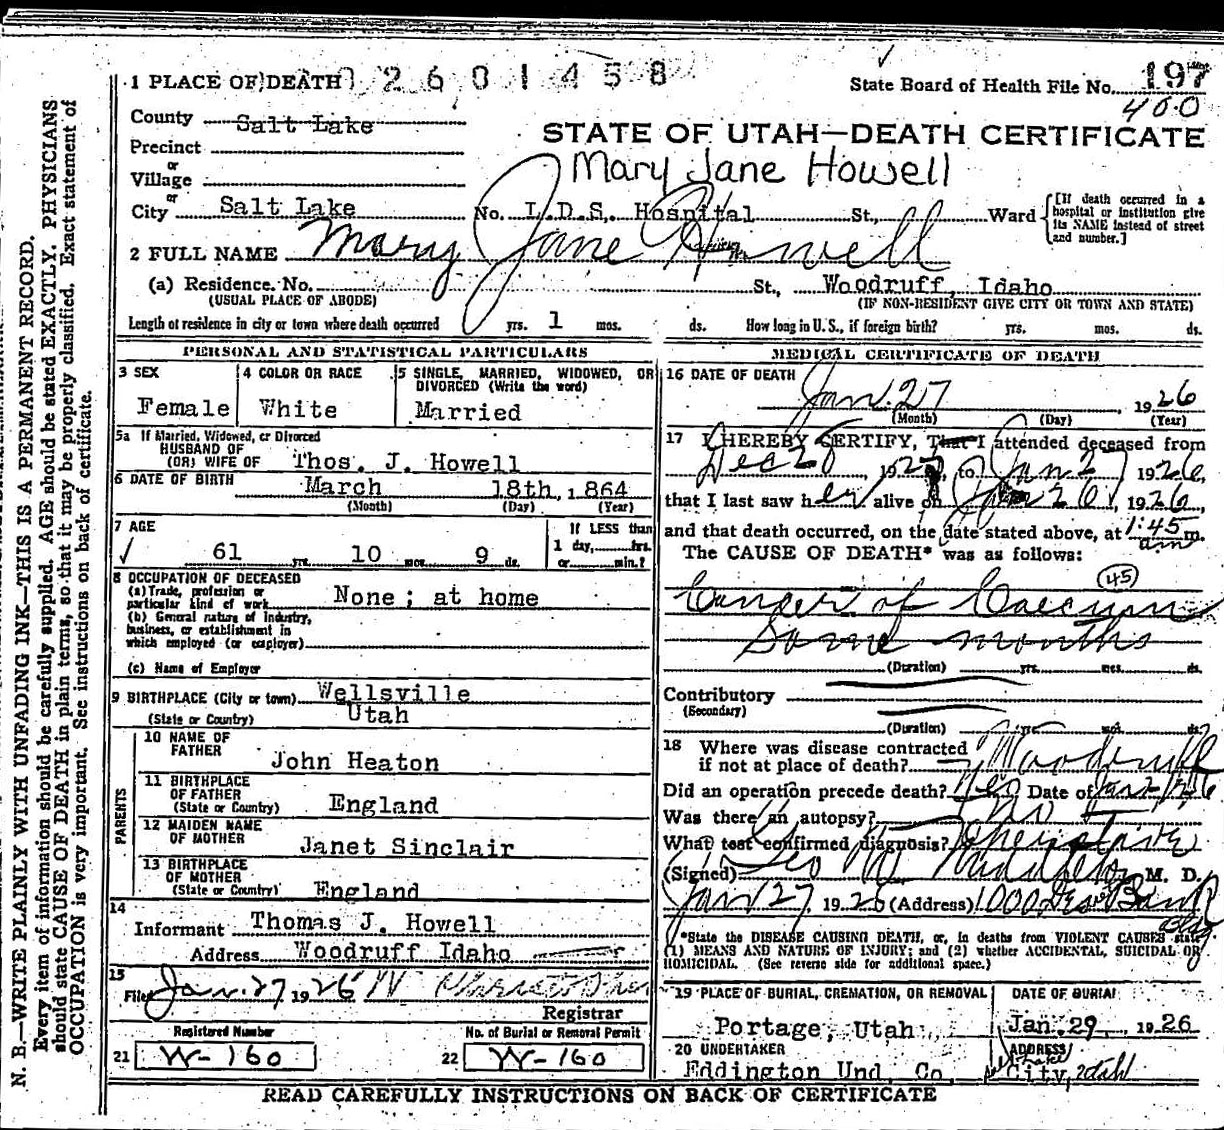 N. B.—WRITE PLAINLY WITH UNFADING INK—THIS IS A PERMANENT RECORD.
Every item of information should be carefully supplied. AGE should be stated EXACTLY. PHYSICIANS
should state CAUSE OF DEATH in plain terms, so that it may be properly classified. Exact statement of
OCCUPATION is very important. See instructions on back of certificate.
1 PLACE OF DEATH 2601458
State Board of Health File No. 197
400
County Salt Lake
STATE OF UTAH—DEATH CERTIFICATE
Precinct
or
Village
Mary Jane Howell
or
City Salt Lake No. L.D.S. Hospital St., Ward
[If death occurred in a
hospital or institution give
its NAME instead of street
and number.]
2 FULL NAME Mary Jane Howell
(a) Residence. No. St., Woodruff, Idaho
(USUAL PLACE OF ABODE) (IF NON-RESIDENT GIVE CITY OR TOWN AND STATE)
Length of residence in city or town where death occurred yrs. 1 mos. ds. How long in U. S., if foreign birth? yrs. mos. ds.
PERSONAL AND STATISTICAL PARTICULARS
3 SEX
Female
4 COLOR OR RACE
White
5 SINGLE, MARRIED, WIDOWED, OR
DIVORCED (Write the word)
Married
5a If Married, Widowed, or Divorced
HUSBAND OF
(OR) WIFE OF Thos. J. Howell
6 DATE OF BIRTH March 18th, 1864
(Month) (Day) (Year)
7 AGE
61 yrs. 10 mos. 9 ds.
If LESS than
1 day, hrs.
or min.?
8 OCCUPATION OF DECEASED
(a) Trade, profession or
particular kind of work None; at home
(b) General nature of industry,
business, or establishment in
which employed (or employer)
(c) Name of Employer
9 BIRTHPLACE (City or town) Wellsville
(State or Country) Utah
PARENTS
10 NAME OF
FATHER
John Heaton
11 BIRTHPLACE
OF FATHER
(State or Country) England
12 MAIDEN NAME
OF MOTHER
Janet Sinclair
13 BIRTHPLACE
OF MOTHER
(State or Country) England
14
Informant Thomas J. Howell
Address Woodruff Idaho
15
Filed Jan. 27 1926
Registrar
Registered Number
21 W-160
No. of Burial or Removal Permit
22 W-160
MEDICAL CERTIFICATE OF DEATH
16 DATE OF DEATH
Jan. 27, 1926
(Month) (Day) (Year)
17 I HEREBY CERTIFY, That I attended deceased from
Dec 28 192 , to Jan 27 1926,
that I last saw her alive on Jan 26, 1926,
and that death occurred, on the date stated above, at 1:45 m.
am
The CAUSE OF DEATH* was as follows:
45
Cancer of Caecum
Some months
(Duration) yrs. mos. ds.
Contributory
(Secondary)
(Duration) yrs. mos. ds.
18 Where was disease contracted
if not at place of death? Woodruff
Did an operation precede death? Yes Date of Jan
Was there an autopsy? No
What test confirmed diagnosis?
(Signed) Geo W Middleton, M. D.
Jan 27, 1926 (Address) 1000 Bank
Bldg
*State the DISEASE CAUSING DEATH, or, in deaths from VIOLENT CAUSES state
(1) MEANS AND NATURE OF INJURY; and (2) whether ACCIDENTAL, SUICIDAL OR
HOMICIDAL. (See reverse side for additional space.)
19 PLACE OF BURIAL, CREMATION, OR REMOVAL
Portage, Utah
DATE OF BURIAL
Jan. 29, 1926
20 UNDERTAKER
Eddington Und. Co.
ADDRESS
Salt Lake
City, Utah
READ CAREFULLY INSTRUCTIONS ON BACK OF CERTIFICATE